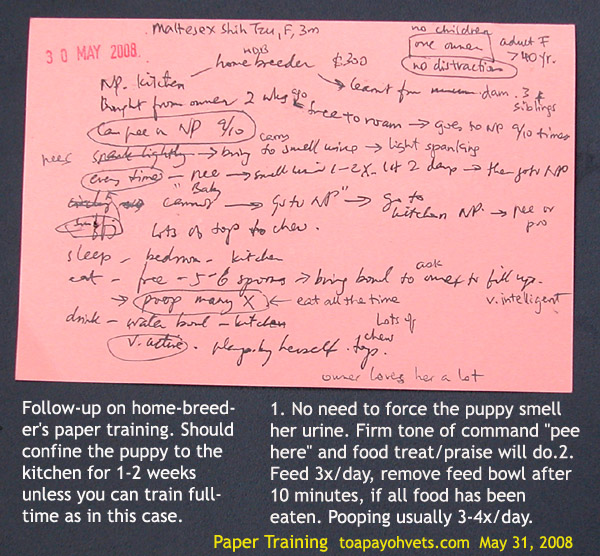 maltesex Shih Tzu, F, 3m
30 MAY 2008
HDB
home breeder $300
no children
one owner adult F
no distraction >40 yr.
NP. kitchen
learnt from dam. 3 siblings
Bought from owner 2 wks ago
free to roam → goes to NP 9/10 times
Can pee in NP 9/10
pees → bring to smell urine → light spanking
every time - pee → smell urine 1-2X. 1st 2 days → then go to NP
"Baby
"go to NP" → go to kitchen NP. → pee or poo
Lots of toys to chew.
sleep - bedroom - kitchen
eat - free - 5-6 spoons → bring bowl to ask owner to fill up.
v. intelligent
→ poop many X ← eat all the time
drink - water bowl - kitchen
v. active. plays by herself. Lots of chew toys.
owner loves her a lot
Follow-up on home-breed-
er's paper training. Should
confine the puppy to the
kitchen for 1-2 weeks
unless you can train full-
time as in this case.
1. No need to force the puppy smell
her urine. Firm tone of command "pee
here" and food treat/praise will do.2.
Feed 3x/day, remove feed bowl after
10 minutes, if all food has been
eaten. Pooping usually 3-4x/day.
Paper Training toapayohvets.com May 31, 2008